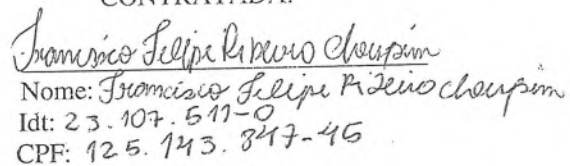 CONTRATADA:
Francisco Felipe Ribeiro Choupim
Nome: Francisco Felipe Ribeiro Choupim
Idt: 23.107.511-0
CPF: 125.143.347-45